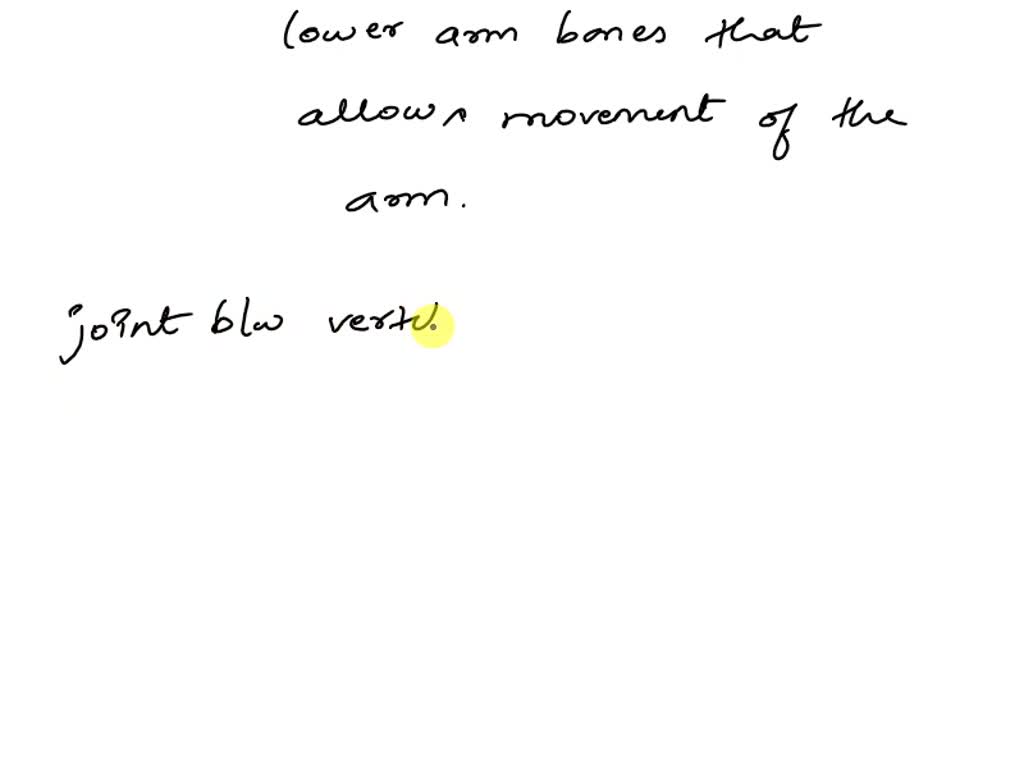 lower arm bones that
allows movement of the
arm.
joint b/w